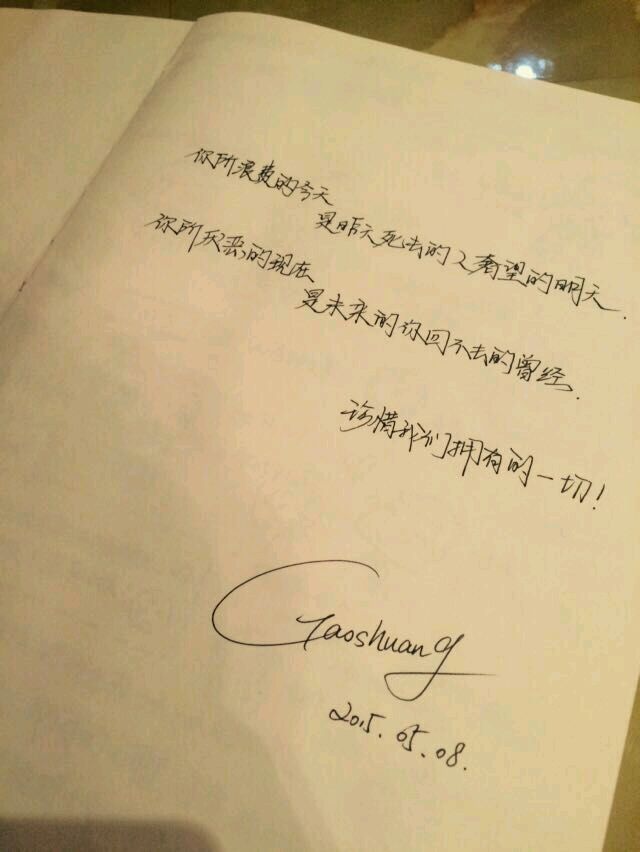 你所浪费的今天
是昨天死去的人奢望的明天.
你所厌恶的现在
是未来的你回不去的曾经.
珍惜我们拥有的一切!
Gaoshuang
2015.05.08.